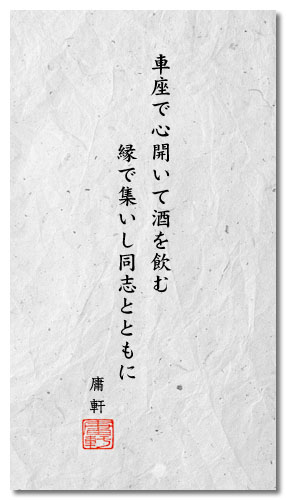 車座で心開いて酒を飲む
縁で集いし同志とともに
庸軒